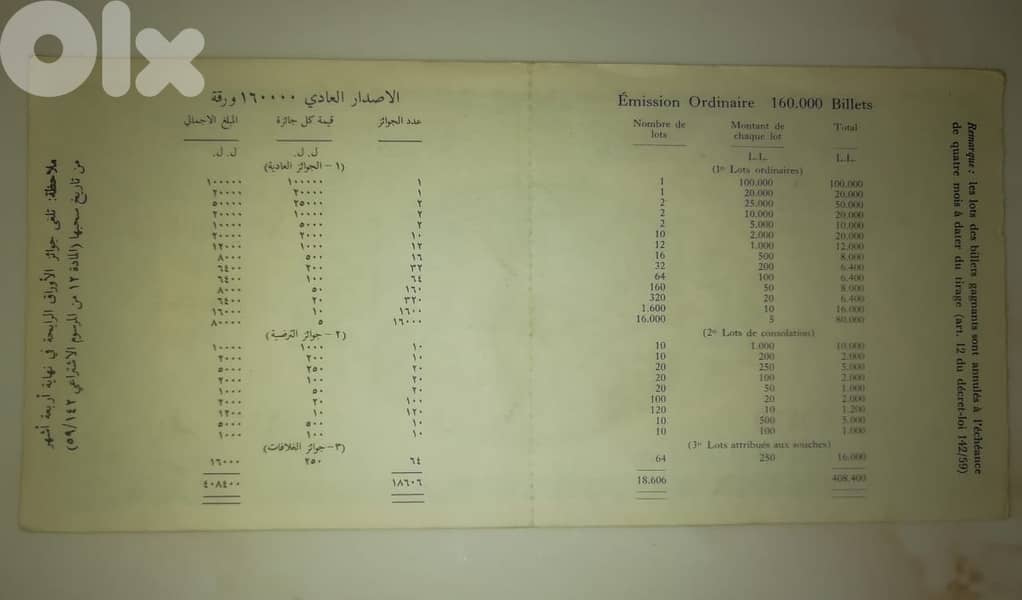 olx
الاصدار العادي ١٦٠٠٠٠ ورقة
عدد الجوائز قيمة كل جائزة المبلغ الاجمالي
ل.ل. ل.ل.
(١ – الجوائز العادية)
١ ١٠٠٠٠٠ ١٠٠٠٠٠
١ ٢٠٠٠٠ ٢٠٠٠٠
٢ ٢٥٠٠٠ ٥٠٠٠٠
٢ ١٠٠٠٠ ٢٠٠٠٠
٢ ٥٠٠٠ ١٠٠٠٠
١٠ ٢٠٠٠ ٢٠٠٠٠
١٢ ١٠٠٠ ١٢٠٠٠
١٦ ٥٠٠ ٨٠٠٠
٣٢ ٢٠٠ ٦٤٠٠
٦٤ ١٠٠ ٦٤٠٠
١٦٠ ٥٠ ٨٠٠٠
٣٢٠ ٢٠ ٦٤٠٠
١٦٠٠ ١٠ ١٦٠٠٠
١٦٠٠٠ ٥ ٨٠٠٠٠
(٢ – جوائز الترضية)
١٠ ١٠٠٠ ١٠٠٠٠
١٠ ٢٠٠ ٢٠٠٠
٢٠ ٢٥٠ ٥٠٠٠
٢٠ ١٠٠ ٢٠٠٠
٢٠ ٥٠ ١٠٠٠
١٠٠ ٢٠ ٢٠٠٠
١٢٠ ١٠ ١٢٠٠
١٠ ٥٠٠ ٥٠٠٠
١٠ ١٠٠ ١٠٠٠
(٣ – جوائز الغلافات)
٦٤ ٢٥٠ ١٦٠٠٠
١٨٦٠٦ ٤٠٨٤٠٠
ملاحظة: تلغى جوائز الأوراق الرابحة في نهاية أربعة أشهر
من تاريخ سحبها (المادة ١٢ من المرسوم الاشتراعي ٥٩/١٤٢)
Émission Ordinaire 160.000 Billets
Nombre de lots Montant de chaque lot Total
L.L. L.L.
(1º Lots ordinaires)
1 100.000 100.000
1 20.000 20.000
2 25.000 50.000
2 10.000 20.000
2 5.000 10.000
10 2.000 20.000
12 1.000 12.000
16 500 8.000
32 200 6.400
64 100 6.400
160 50 8.000
320 20 6.400
1.600 10 16.000
16.000 5 80.000
(2º Lots de consolation)
10 1.000 10.000
10 200 2.000
20 250 5.000
20 100 2.000
20 50 1.000
100 20 2.000
120 10 1.200
10 500 5.000
10 100 1.000
(3º Lots attribués aux souches)
64 250 16.000
18.606 408.400
Remarque: les lots des billets gagnants sont annulés à l'échéance
de quatre mois à dater du tirage (art. 12 du décret-loi 142/59)